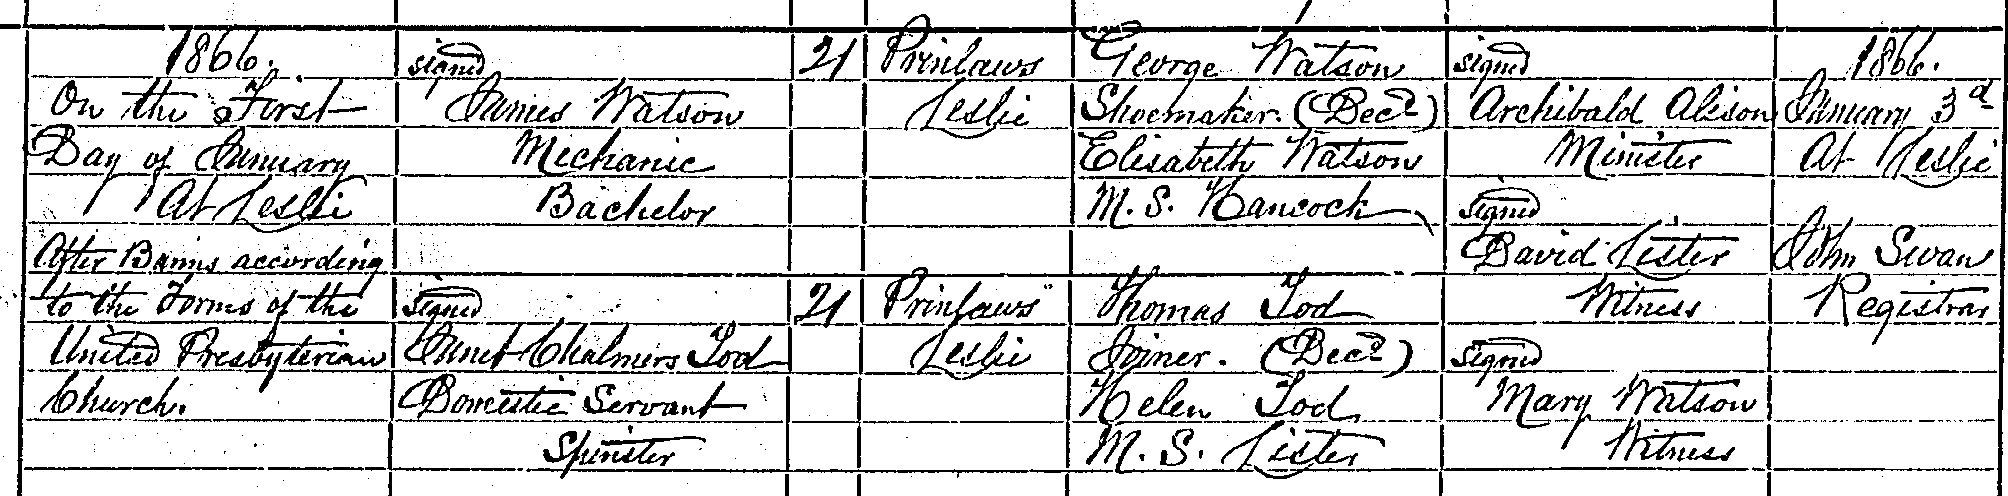 1866.
On the First
Day of January
At Leslie
After Banns according
to the Forms of the
United Presbyterian
Church.
signed
James Watson
Mechanic
Bachelor
signed
Janet Chalmers Tod
Domestic Servant
Spinster
21
21
Prinlaws
Leslie
Prinlaws
Leslie
George Watson
Shoemaker. (Decd)
Elisabeth Watson
M. S. Hancock
Thomas Tod
Joiner. (Decd)
Helen Tod
M. S. Lister
signed
Archibald Alison
Minister
signed
David Lister
Witness
signed
Mary Watson
Witness
1866.
January 3d
At Leslie
John Swan
Registrar